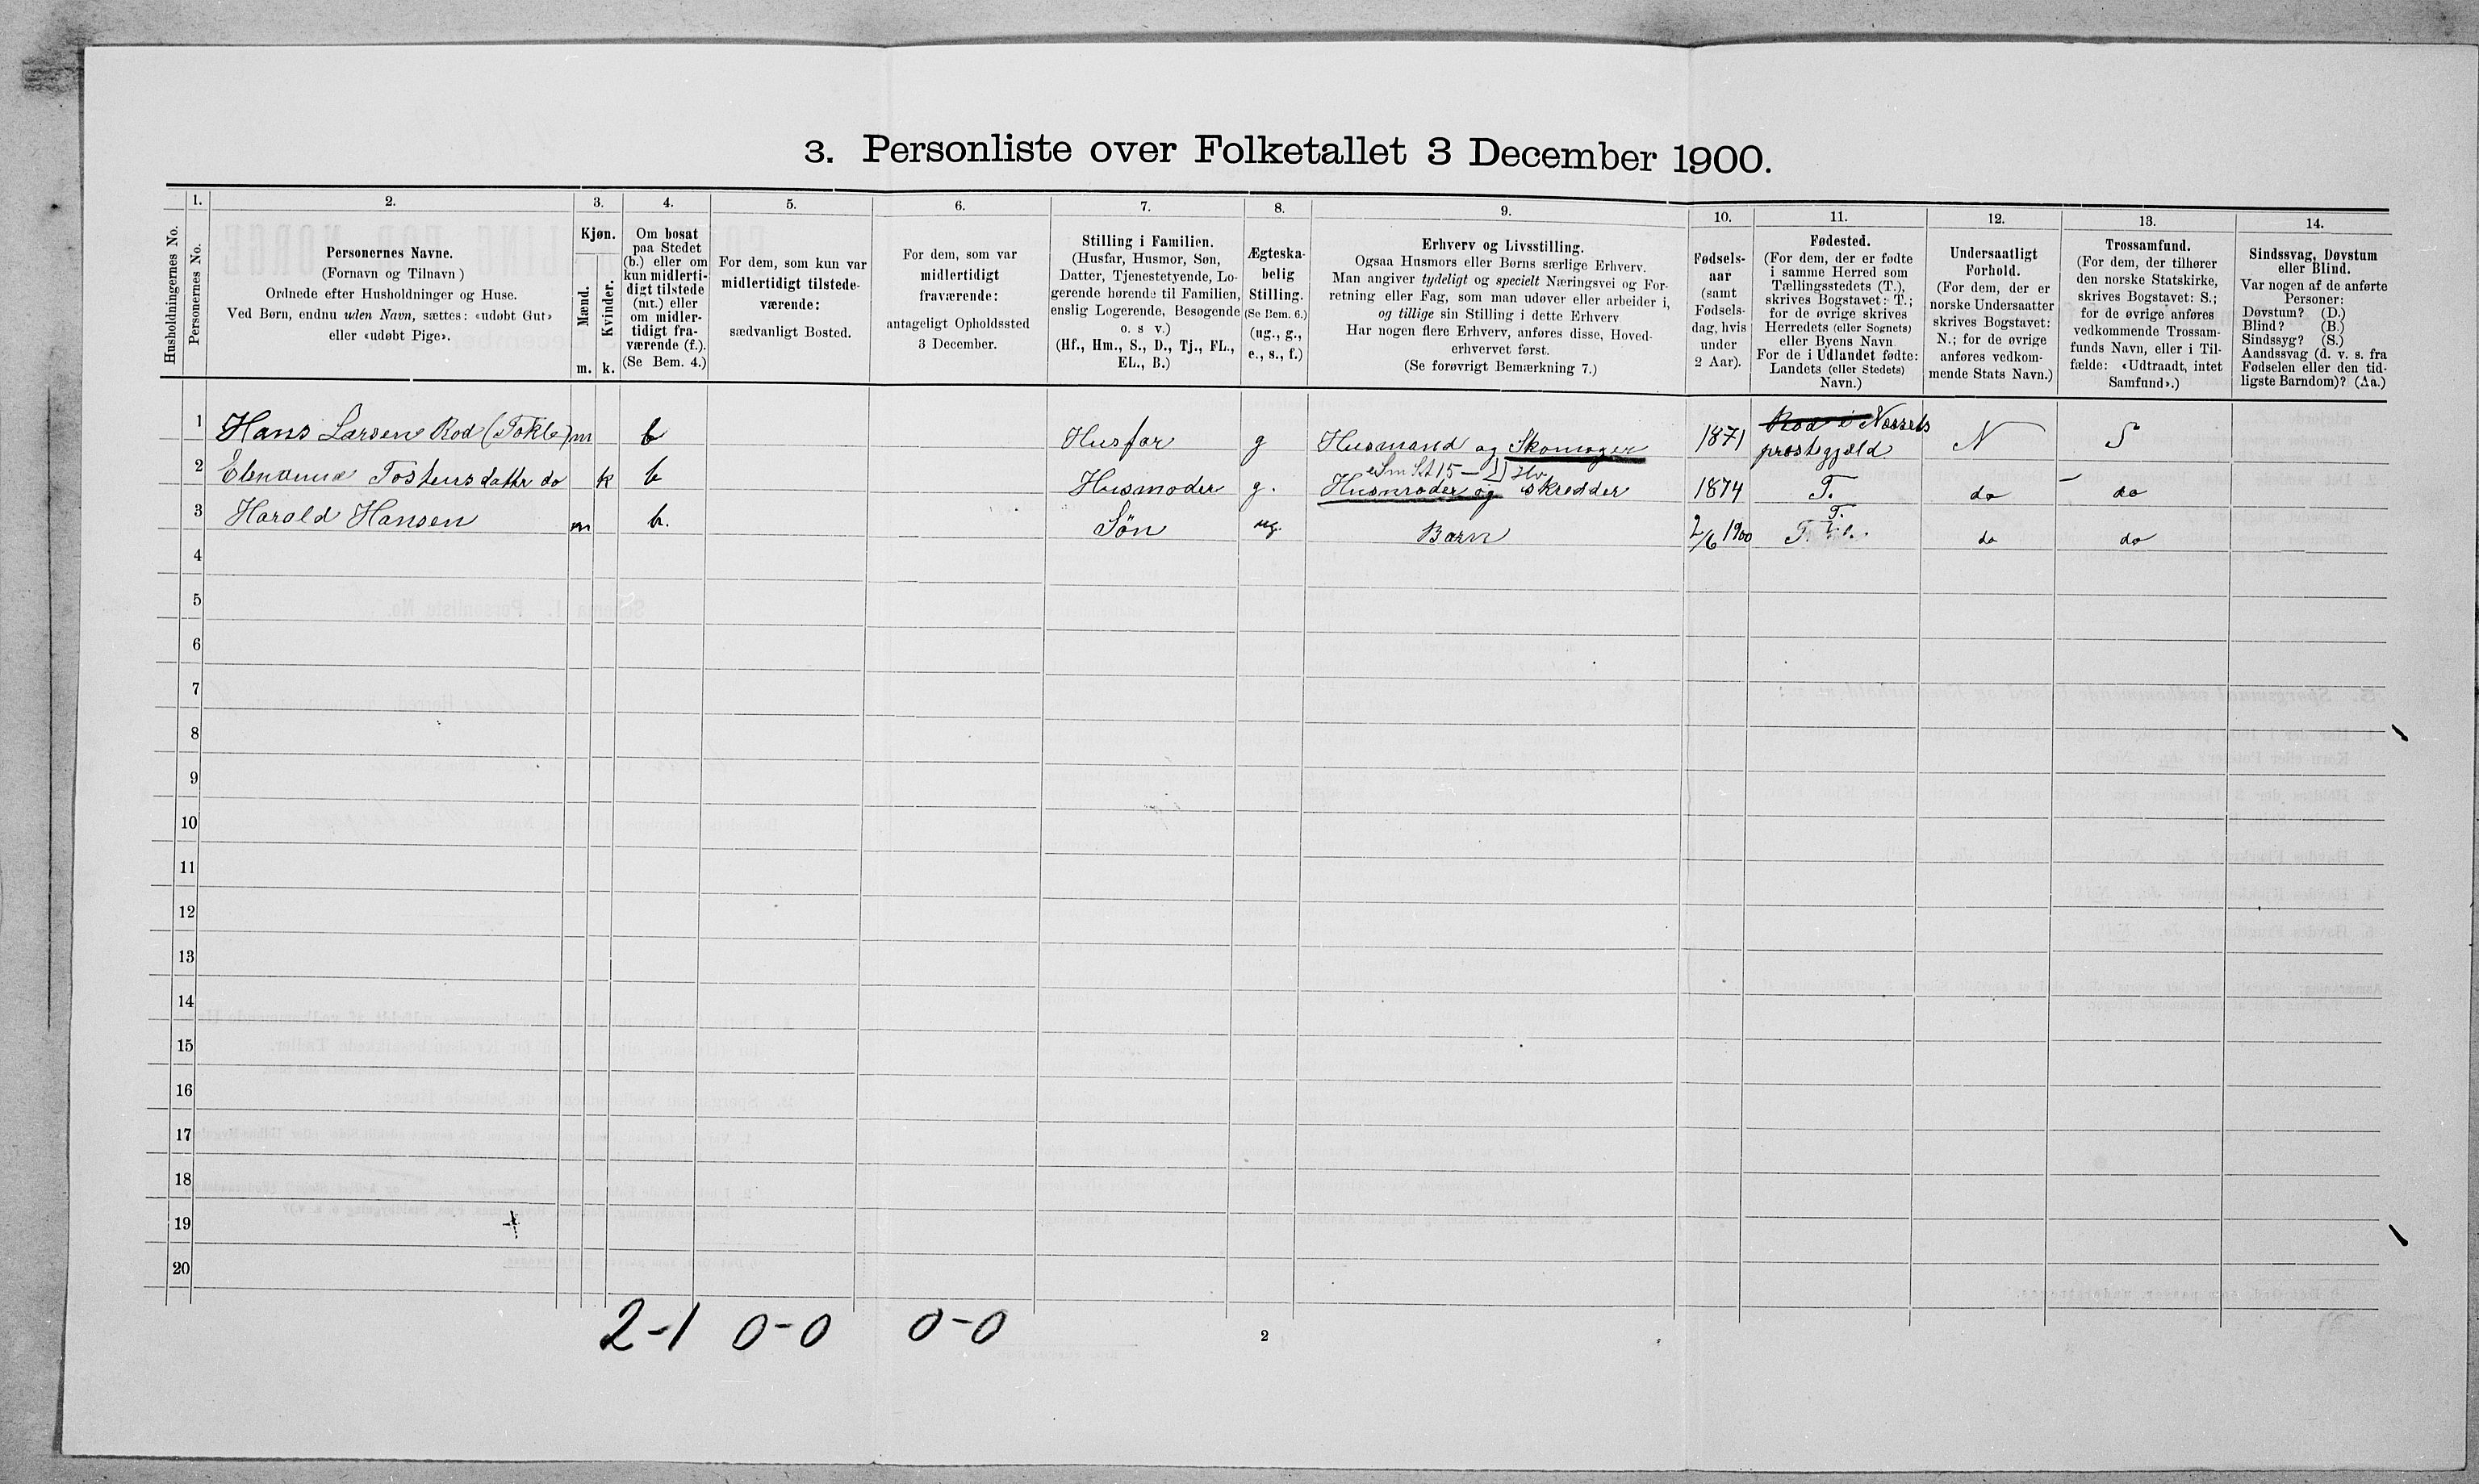 3. Personliste over Folketallet 3 December 1900.
Husholdningernes No.
1.
Personernes No.
2.
Personernes Navne.
(Fornavn og Tilnavn)
Ordnede efter Husholdninger og Huse.
Ved Børn, endnu uden Navn, sættes: «udøbt Gut»
eller «udøbt Pige».
3.
Kjøn.
Mænd.
Kvinder.
m. k.
4.
Om bosat
paa Stedet
(b.) eller om
kun midlerti-
digt tilstede
(mt.) eller
om midler-
tidigt fra-
værende (f.).
(Se Bem. 4.)
5.
For dem, som kun var
midlertidigt tilstede-
værende:
sædvanligt Bosted.
6.
For dem, som var
midlertidigt
fraværende:
antageligt Opholdssted
3 December.
7.
Stilling i Familien.
(Husfar, Husmor, Søn,
Datter, Tjenestetyende, Lo-
gerende hørende til Familien,
enslig Logerende, Besøgende
o. s v.)
(Hf., Hm., S., D., Tj., FL.,
EL., B.)
8.
Ægteska-
belig
Stilling.
(Se Bem. 6.)
(ug., g.,
e., s., f.)
9.
Erhverv og Livsstilling.
Ogsaa Husmors eller Børns særlige Erhverv.
Man angiver tydeligt og specielt Næringsvei og For-
retning eller Fag, som man udøver eller arbeider i,
og tillige sin Stilling i dette Erhverv
Har nogen flere Erhverv, anføres disse, Hoved-
erhvervet først.
(Se forøvrigt Bemærkning 7.)
10.
Fødsels-
aar
(samt
Fødsels-
dag, hvis
under
2 Aar).
11.
Fødested.
(For dem, der er fødte
i samme Herred som
Tællingsstedets (T.),
skrives Bogstavet: T.;
for de øvrige skrives
Herredets (eller Sognets)
eller Byens Navn
For de i Udlandet fødte:
Landets (eller Stedets)
Navn.)
12.
Undersaatligt
Forhold.
(For dem, der er
norske Undersaatter
skrives Bogstavet:
N.; for de øvrige
anføres vedkom-
mende Stats Navn.)
13.
Trossamfund.
(For dem, der tilhører
den norske Statskirke,
skrives Bogstavet: S.;
for de øvrige anføres
vedkommende Trossam-
funds Navn, eller i Til-
fælde: «Udtraadt, intet
Samfund».)
14.
Sindssvag, Døvstum
eller Blind.
Var nogen af de anførte
Personer:
Døvstum? (D.)
Blind? (B.)
Sindssyg? (S.)
Aandssvag (d. v. s. fra
Fødselen eller den tid-
ligste Barndom)? (Aa.)
1 Hans Larsen Rod (Tokle) m b Husfar g Husmand og Skomager 1871 Rod i Nessets prestegjeld N S
2 Tostensdatter do k b Husmoder g. Husmoder og skredder 1874 T. do do
3 Harald Hansen m b. Søn ug. Barn 2/6 1900 T. do do
4
5
6
7
8
9
10
11
12
13
14
15
16
17
18
19
20
2-1 0-0 0-0
2